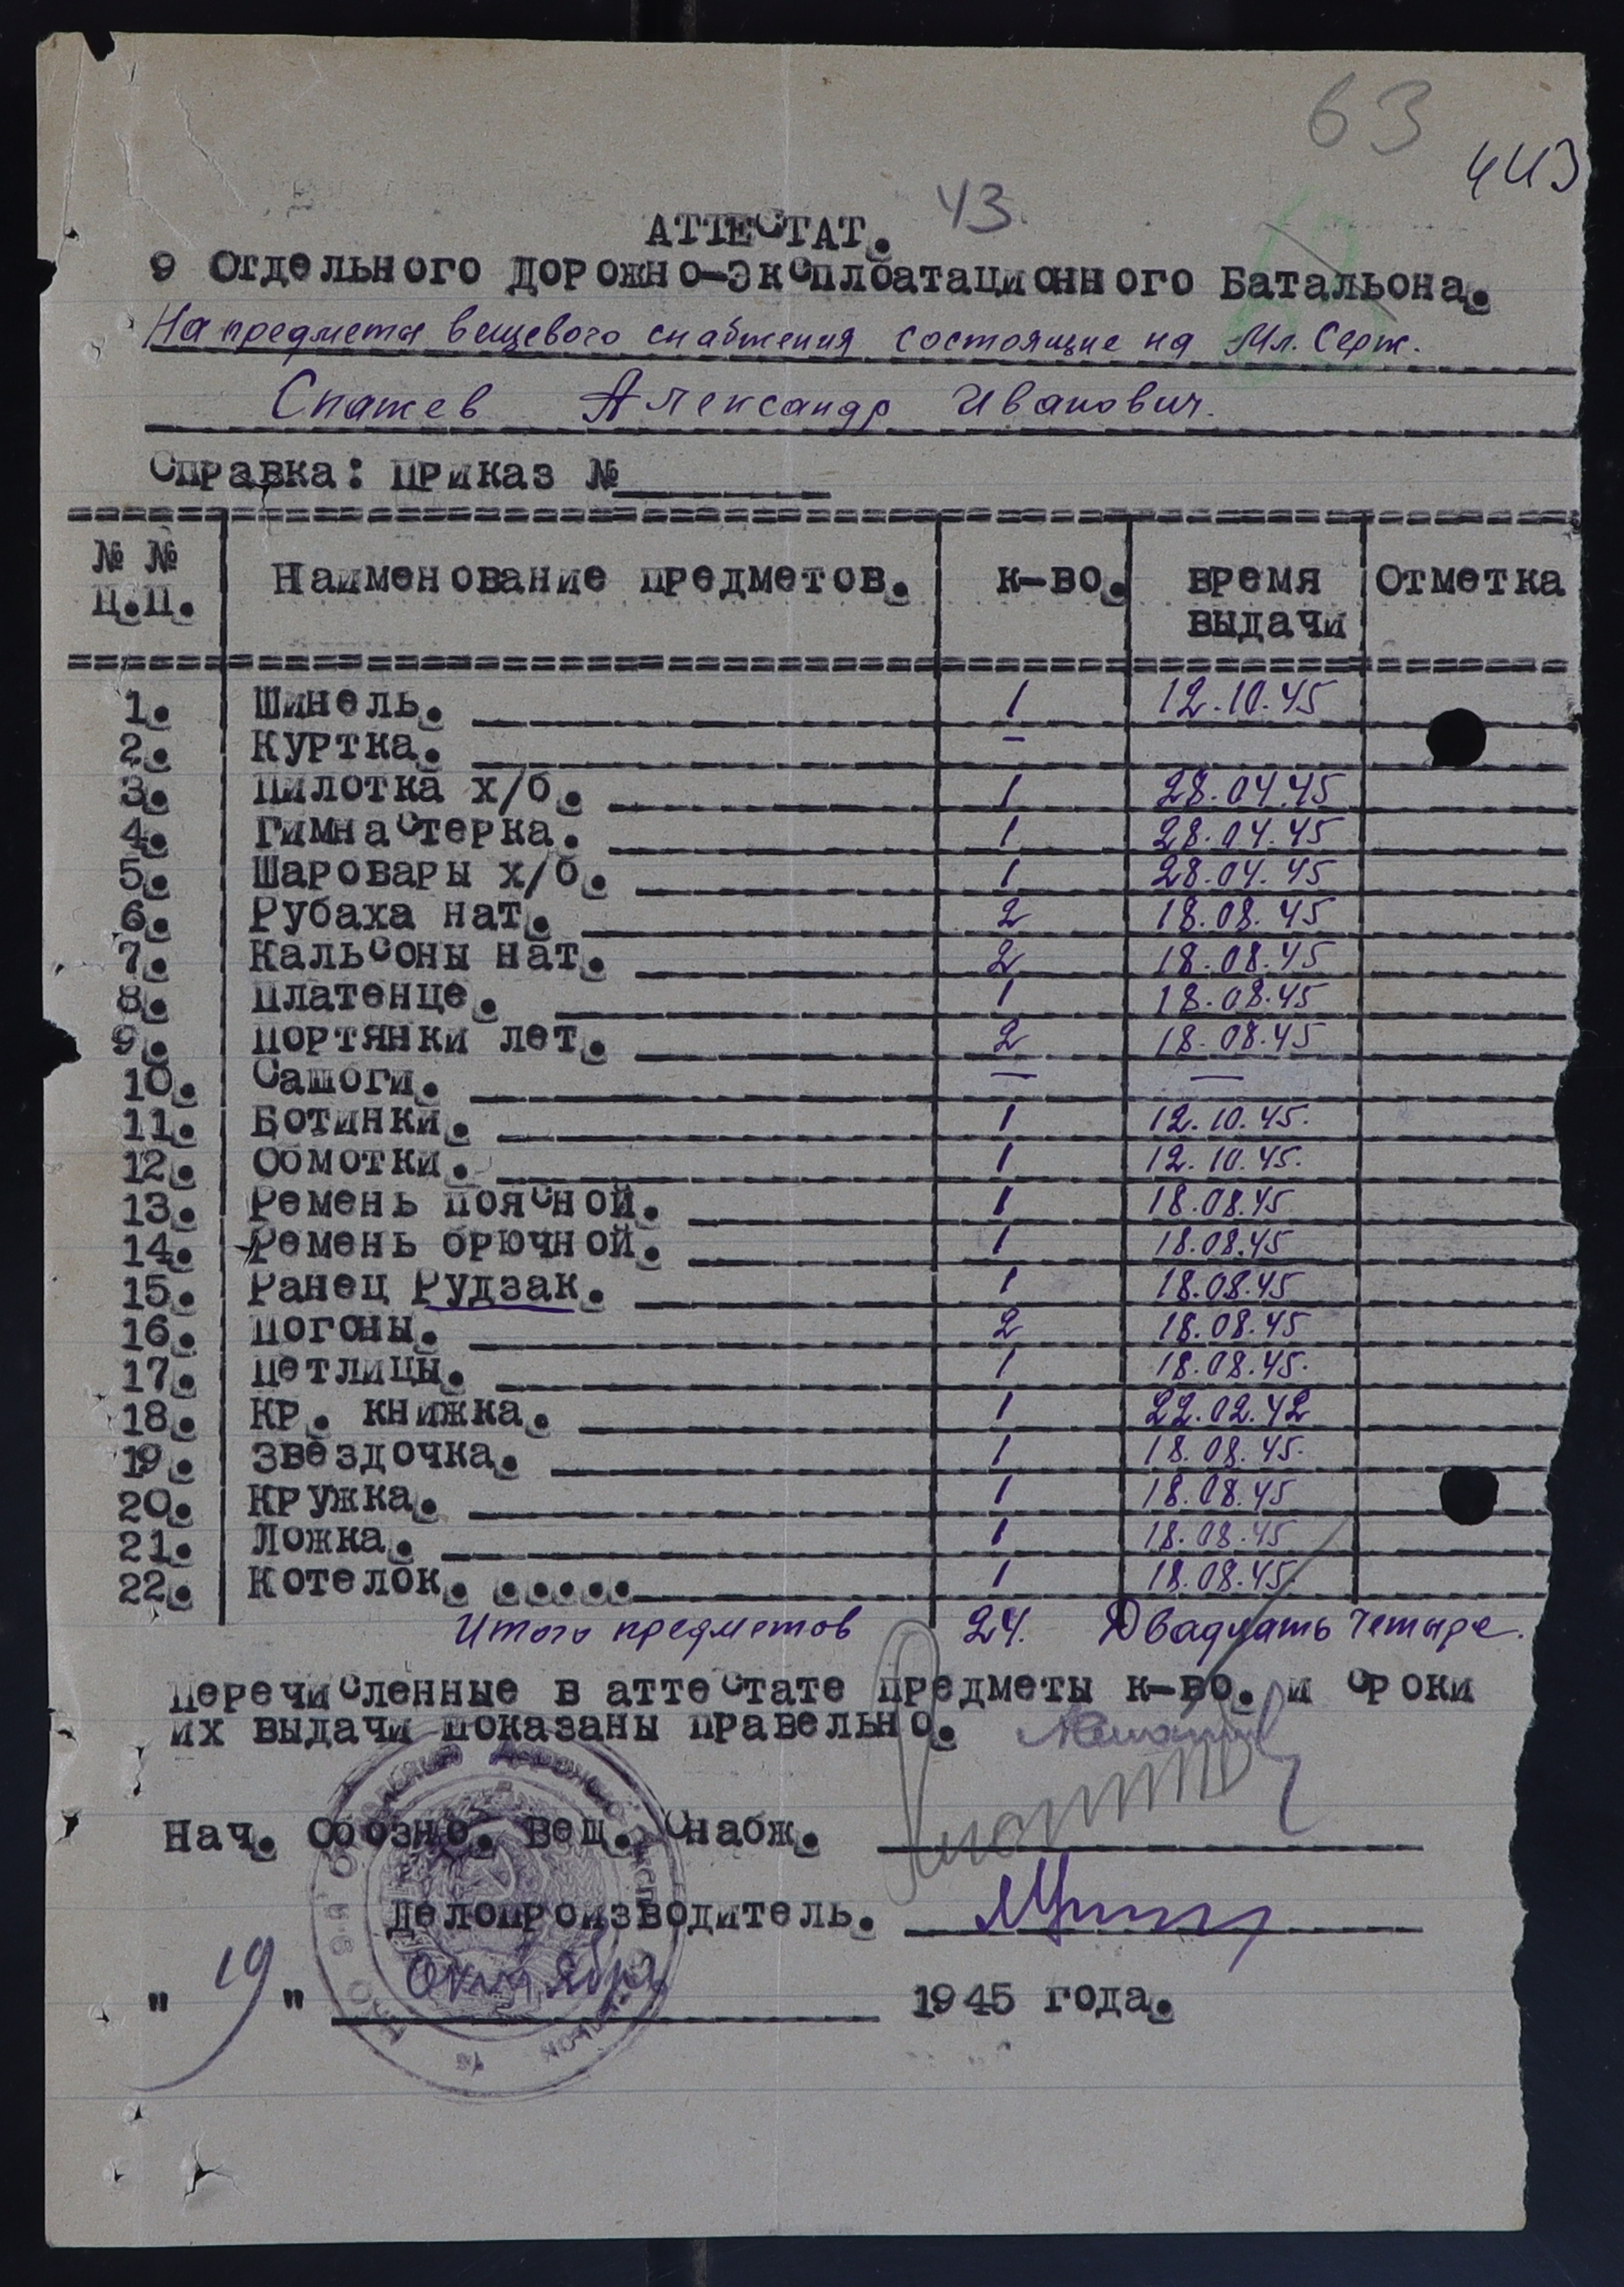 63
443
43.
АТТЕСТАТ.
9 Отдельного Дорожно-Эксплоатационного Батальона.
На предметы вещевого снабжения состоящие на Мл. Серж.
Спажев Александр Иванович.
Справка: Приказ №
№ № п.п. Наименование предметов. к-во. время выдачи Отметка
1. Шинель. 1 12.10.45
2. Куртка. –
3. Пилотка х/б. 1 28.04.45
4. Гимнастерка. 1 28.04.45
5. Шаровары х/б. 1 28.04.45
6. Рубаха нат. 2 18.08.45
7. Кальсоны нат. 2 18.08.45
8. Платенце. 1 18.08.45
9. Портянки лет. 2 18.08.45
10. Сашоги. — —
11. Ботинки. 1 12.10.45.
12. Обмотки. 1 12.10.45.
13. Ремень поясной. 1 18.08.45
14. Ремень брючной. 1 18.08.45
15. Ранец Рудзак. 1 18.08.45
16. Погоны. 2 18.08.45
17. Петлицы. 1 18.08.45.
18. Кр. книжка. 1 22.02.42
19. Звездочка. 1 18.08.45.
20. Кружка. 1 18.08.45
21. Ложка. 1 18.08.45
22. Котелок. ..... 1 18.08.45
Итого предметов 24. Двадцать четыре.
Перечисленные в аттестате предметы к-во. и сроки
их выдачи показаны правельно.
Нач. Обозно. Вещ. Снабж.
Делопроизводитель.
" 19 " Октября 1945 года.